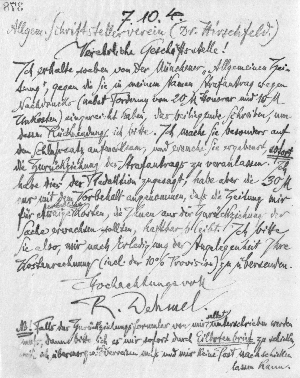 378
7.10.4.
Allgem. Schriftstellerverein (Dr. Hirschfeld.)
Verehrliche Geschäftsstelle!
Ich erhalte soeben von der Münchener „Allgemeinen Zei-
tung", gegen die Sie in meinem Namen Strafantrag wegen
Nachdrucks (nebst Forderung von 20 M Honorar und 10 M
Unkosten) eingereicht haben, das beiliegende Schreiben, um
dessen Rücksendung ich bitte. Ich mache Sie besonders auf
den Schlußsatz aufmerksam, und ersuche Sie ergebenst, sofort
die Zurückziehung des Strafantrags zu veranlassen. Ich
habe dies der Redaktion zugesagt, habe aber die 30 M
nur mit dem Vorbehalt angenommen, daß die Zeitung mir
für etwaige Kosten, die Ihnen aus der Zurückziehung der
Sache erwachsen sollten, haftbar bleibt. Ich bitte
Sie also, mir nach Erledigung der Angelegenheit Ihre
Kostenrechnung (incl. der 10% Provision) zu übersenden.
Hochachtungsvoll
R. Dehmel.
NB! Falls das Zurückziehungsformular von mir unterschrieben werden
muß, dann bitte ich es mir sofort durch Eilboten zu schicken,
weil ich übermorgen verreisen muß und mir keine Post nachschicken
lassen kann.